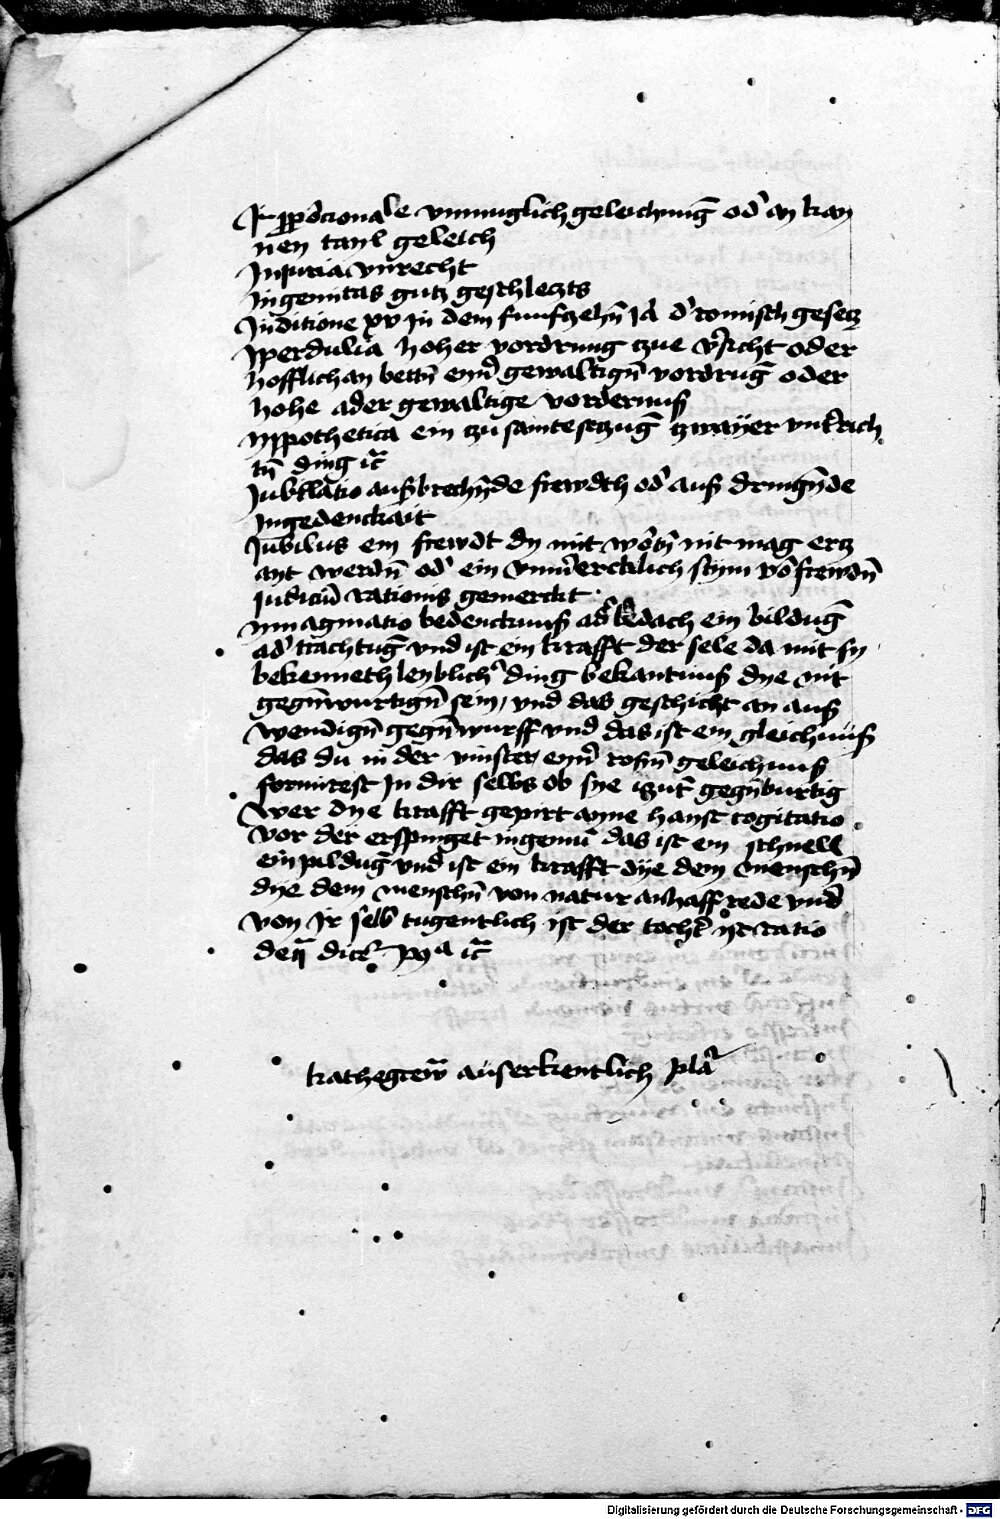 Inproporcionale vnmuglich geleichnūg od' an kay
nen tayl geleich
Iniuria vnrecht
Ingenuitas gutz geschlechts
Inditione xv in dem funfzehn̄ Ja' d' romisch gesetz
Yperdulia hoher vordrung zue v'sicht oder
hofflich an bettn̄ eyn' gewaltign̄ vordruḡ oder
hohe ader gewaltige vordernuß
ypothetica ein zu samte setzuḡ zwayer vnt'rich
tn̄ ding ꝛc̄
Iubilatio außbrechn̄de frewdth od' auß dringn̄de
Ingedenckait
Iubilus ein frewdt dy mit wortn̄ nit mag ertz
ant werdn̄ od' ein vnm'ercklich stym vō frewdn̄
Iudiciū rationis gemerckt
ymagmatio bedencknuß ad' bedach ein bilduḡ
ad' trachtuḡ vnd ist ein krafft der sele da mit sy
bekenneth leyblich' ding bekantnuß dye nit
gegn̄wurtign̄ sein, vnd das geschicht an auß
wendign̄ gegn̄wurff vnd das ist ein gleichnuß
das du in der vinster eyn' rosn̄ geleichnuß
formirest In dir selbs ob sye izut̄ gegn̄burtig
wer dye krafft gepirt ayne haust cogitatio
vor der erspringet ingeniū das ist ein schnell
ein pilduḡ vnd ist ein krafft dye dem menschn̄
dye dem menschn̄ von natur anhafft rede vnd
von Ir selb tugentlich ist der tocht' yst ratio
de q̄ dict' ꝛc̄
kathegrew̄ auserkentlich pla'
Digitalisierung gefördert durch die Deutsche Forschungsgemeinschaft - DFG